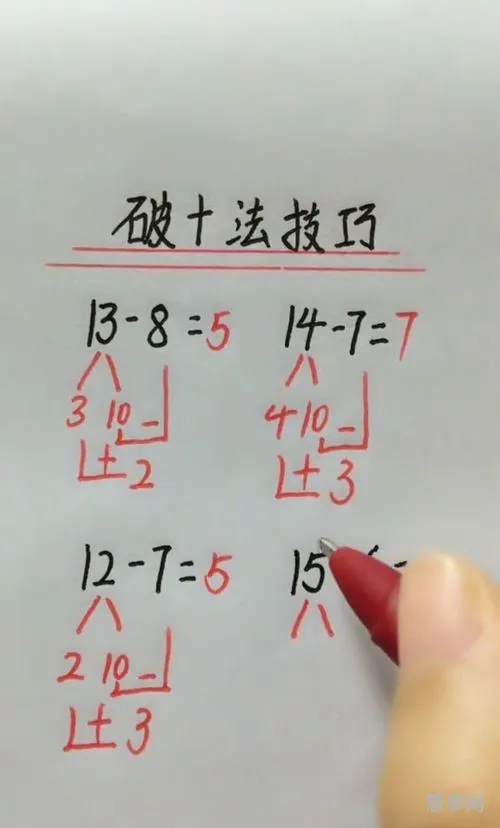 破十法技巧
13-8=5 14-7=7
3 10 - 4 10 -
+ 2 + 3
12-7=5 15
2 10 -
+ 3